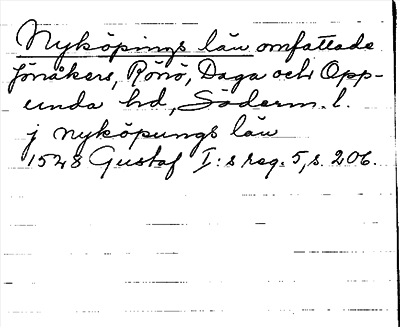 Nyköpings län omfattade
Jönåkers, Rönö, Daga och Opp-
unda hd, Söderm. l.
j nyköpungs län
1548 Gustaf I:s reg. 5, s. 206.